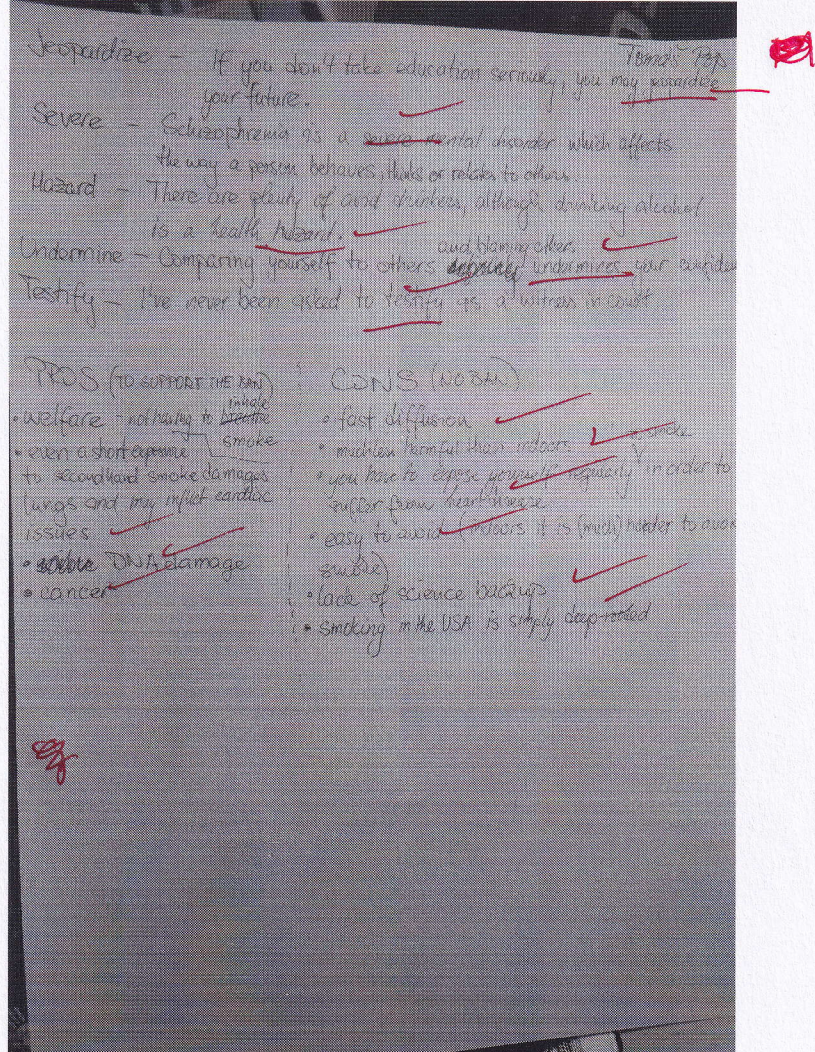 Tomáš Pop
Jeopardize – If you don't take education seriously, you may jeopardize
your future.
Severe – Schizophrenia is a severe mental disorder which affects
the way a person behaves, thinks or relates to others.
Hazard – There are plenty of avid drinkers, although drinking alcohol
is a health hazard.
and blaming other.
Undermine – Comparing yourself to others undermines your confiden
Testify – I've never been asked to testify as a witness in court
PROS (TO SUPPORT THE BAN)
• welfare – not having to breathe inhale
smoke
• even a short exposure
to secondhand smoke damages
lungs and may inflict cardiac
issues
• DNA damage
• cancer
CONS (NO BAN)
• fast diffusion
• much less harmful than indoors
• you have to expose yourself regularly in order to
to smoke
suffer from heart disease
• easy to avoid (indoors it is (much) harder to avoid
smoke)
• lack of science backup
• smoking in the USA is simply deep-rooted